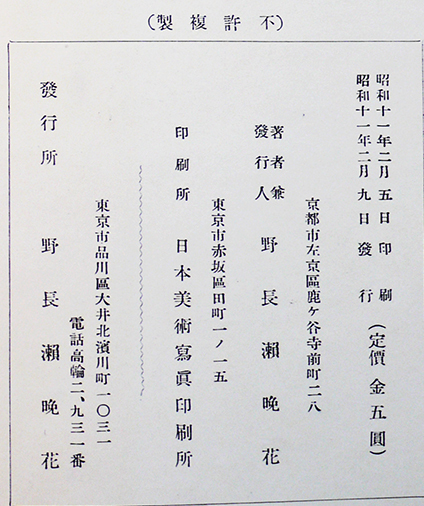 (不許複製)
昭和十一年二月五日印刷
昭和十一年二月九日發行
(定價金五圓)
京都市左京區鹿ヶ谷寺前町二八
著者兼發行人 野長瀬晩花
東京市赤坂區田町一ノ一五
印刷所 日本美術寫眞印刷所
東京市品川區大井北濱川町一〇三一
電話高輪二、九三一番
發行所 野長瀬晩花